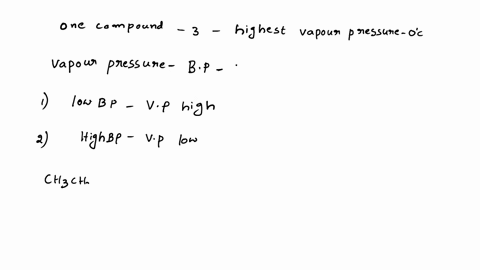 one compound - 3 - highest vapour pressure - 0°c
vapour pressure - B.P -
1) low BP - V.P high
2) High BP - V.P low
CH3CH